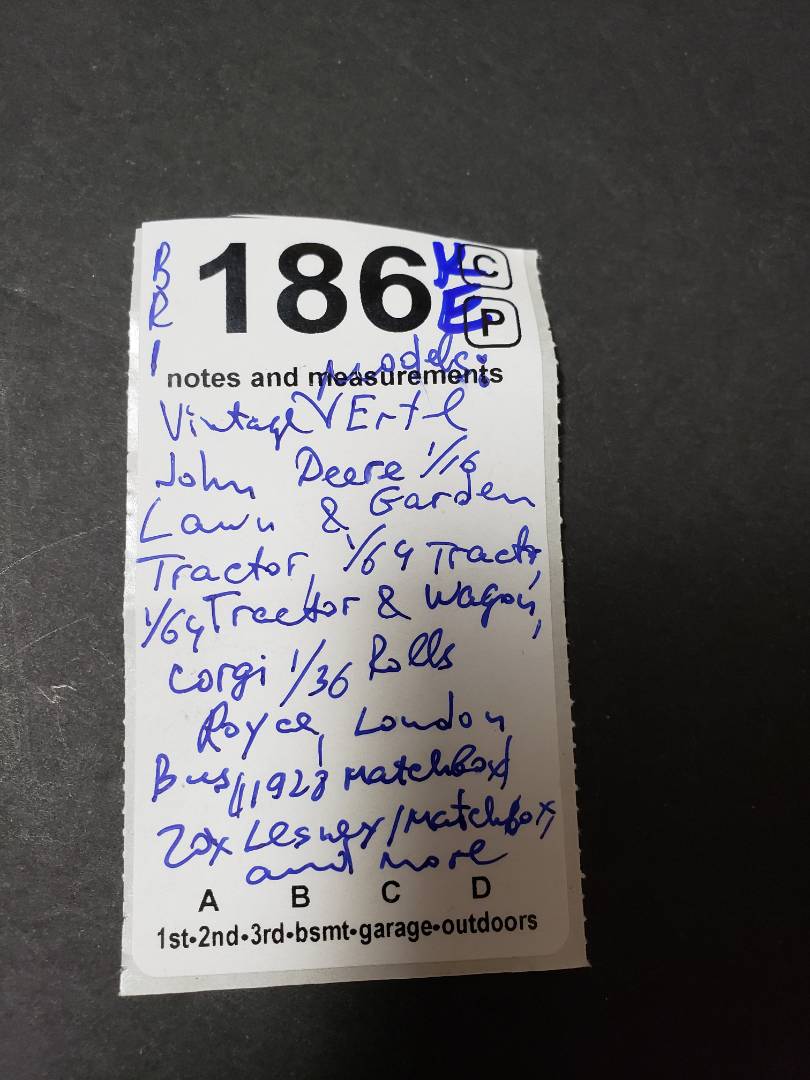 BRI 186 KE C P
models:
notes and measurements
Vintage √ Ertl
John Deere 1/16
Lawn & Garden
Tractor, 1/64 Tractr,
1/64 Tractor & Wagon,
Corgi 1/36 Rolls
Royce, London
Bus, (1928 Matchbox)
20x Lesney/Matchbox,
and more
A B C D
1st•2nd•3rd•bsmt•garage•outdoors